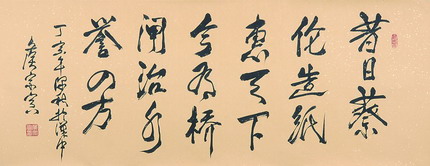 昔日蔡
伦造纸
惠天下
今有桥
闸治水
誉四方
丁亥年深秋於漢中